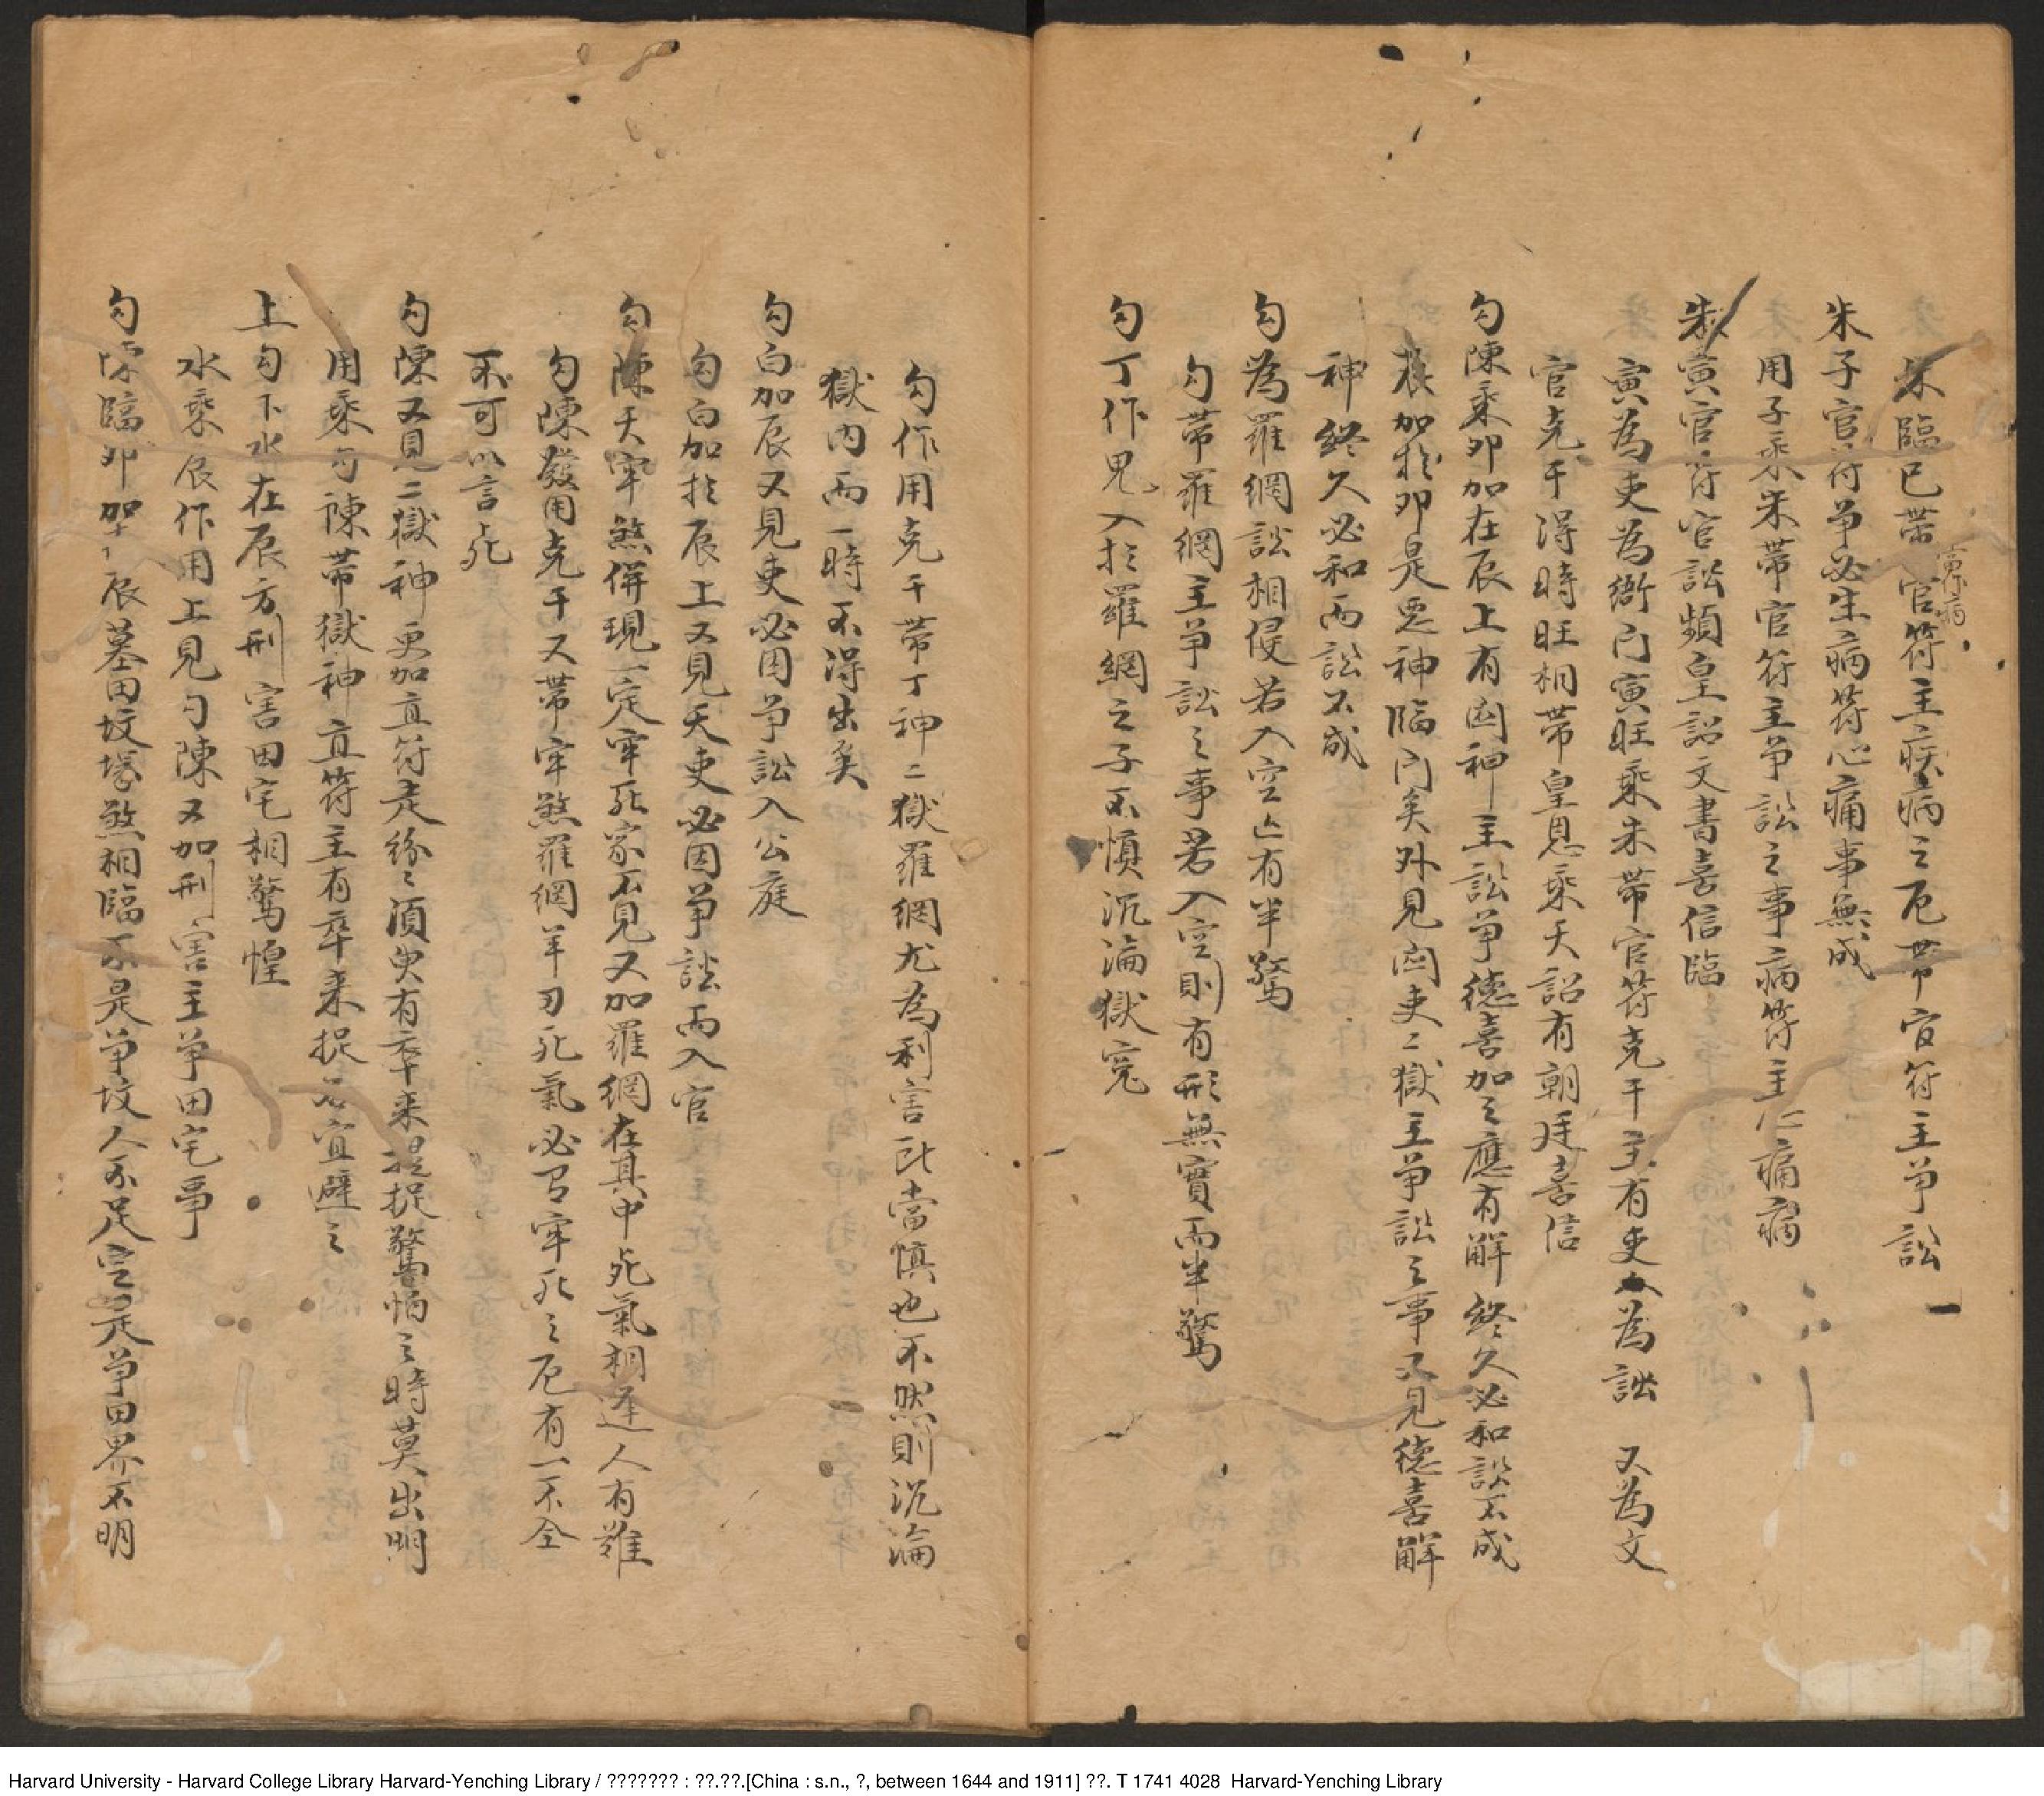 朱臨巳帶官符主疾病之厄帶官符主爭訟
朱子官符爭必生病符心痛事無成
用子乘朱帶官符主爭訟之事病符主心痛病
朱寅官符官訟頻皇詔文書喜信臨
寅為吏為衙门寅旺乘朱帶官符克干主有吏為訟 又為文
官克干得時旺相帶皇恩乘天詔有朝廷喜信
勾陳乘卯加在辰上有凶神主訟爭德喜加之應有解終久必和訟不成
辰加於卯是惡神臨门矣外見凶吏二獄主爭訟之事又見德喜解
神終久必和而訟不成
勾為羅網訟相侵若入空亡有半驚
勾帶羅網主爭訟之事若入空則有形無實而半驚
勾丁作鬼入於羅網之子不慎沉淪獄冤
勾作用克干帶丁神二獄羅網尤為利害訟當慎也不然則沉淪
獄內而一時不得出矣
勾白加辰又見吏必因爭訟入公庭
勾白加於辰上又見天吏必因爭訟而入官
勾陳天牢煞併現一定牢死家不見又加羅網在其中死氣相逢人有難
勾陳發用克干又帶牢煞羅網羊刃死氣必有牢死之厄有一不全
不可以言死
勾陳又見二獄神更加直符走紛々須臾有卒來提捉驚怕之時莫出明
用乘勾陳帶獄神直符主有卒来捉 宜避之
上勾下水在辰方刑害田宅相驚惶
水乘辰作用上見勾陳又加刑害主爭田宅事
勾陳臨卯加辰墓田坟塚煞相臨不是爭坟人不足定是爭田界不明